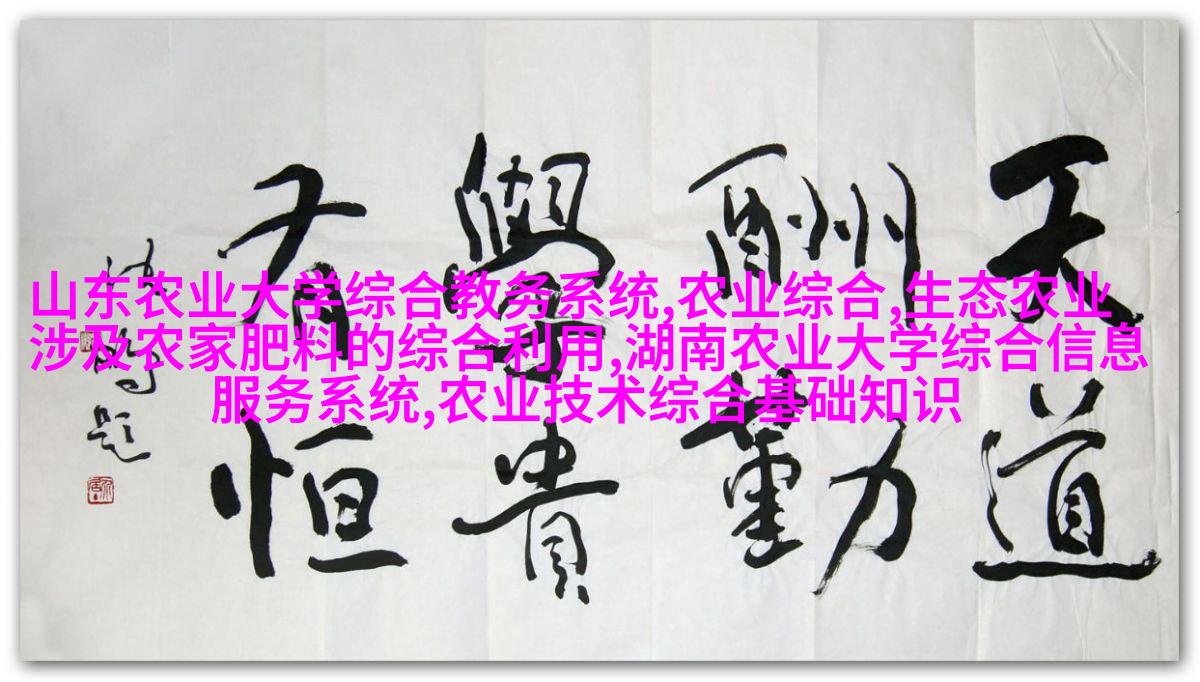 山东农业大学综合教务系统,农业综合,生态农业
涉及农家肥料的综合利用,湖南农业大学综合信息
服务系统,农业技术综合基础知识
天道
酬勤
學貴
有恒